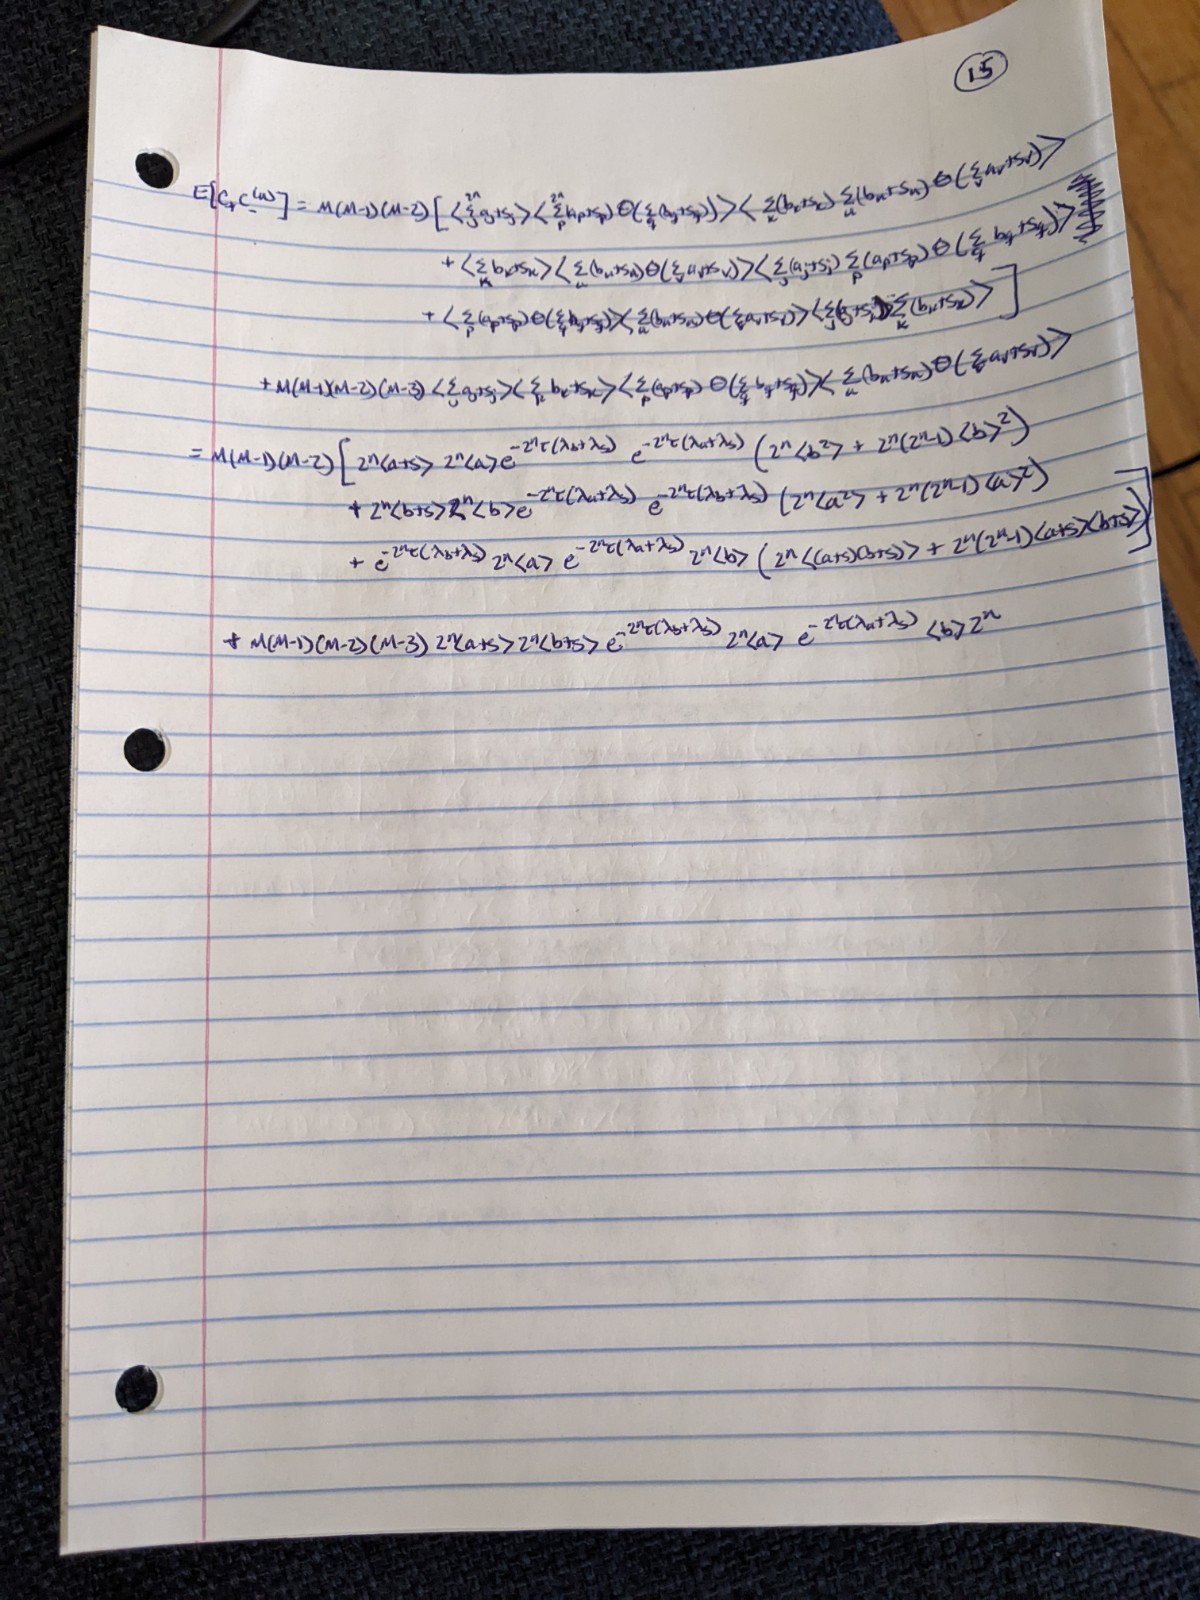 15
E[C₊C₋⁽ⁿ⁾] = M(M-1)(M-2) [ <Σ_j^{2ⁿ} a_j+s_j> <Σ_p^{2ⁿ} (a_p+s_p) Θ(Σ_q (b_q+s_q))> <Σ_k (b_k+s_k) Σ_u (b_u+s_u) Θ(Σ_v a_v+s_v)>
+ <Σ_k b_k+s_k> <Σ_u (b_u+s_u) Θ(Σ_v a_v+s_v)> <Σ_j (a_j+s_j) Σ_p (a_p+s_p) Θ(Σ_q b_q+s_q)>
+ <Σ_p (a_p+s_p) Θ(Σ_q b_q+s_q)> <Σ_u (b_u+s_u) Θ(Σ_v a_v+s_v)> <Σ_j (a_j+s_j) Σ_k (b_k+s_k)> ]
+ M(M-1)(M-2)(M-3) <Σ_j a_j+s_j> <Σ_k b_k+s_k> <Σ_p (a_p+s_p) Θ(Σ_q b_q+s_q)> <Σ_u (b_u+s_u) Θ(Σ_v a_v+s_v)>
= M(M-1)(M-2) [ 2ⁿ<a+s> 2ⁿ<a> e^{-2ⁿτ(λ_b+λ_s)} e^{-2ⁿτ(λ_a+λ_s)} (2ⁿ<b²> + 2ⁿ(2ⁿ-1)<b>²)
+ 2ⁿ<b+s> 2ⁿ<b> e^{-2ⁿτ(λ_a+λ_s)} e^{-2ⁿτ(λ_b+λ_s)} (2ⁿ<a²> + 2ⁿ(2ⁿ-1)<a>²)
+ e^{-2ⁿτ(λ_b+λ_s)} 2ⁿ<a> e^{-2ⁿτ(λ_a+λ_s)} 2ⁿ<b> (2ⁿ<(a+s)(b+s)> + 2ⁿ(2ⁿ-1)<a+s><b+s>) ]
+ M(M-1)(M-2)(M-3) 2ⁿ<a+s> 2ⁿ<b+s> e^{-2ⁿτ(λ_b+λ_s)} 2ⁿ<a> e^{-2ⁿτ(λ_a+λ_s)} <b> 2ⁿ